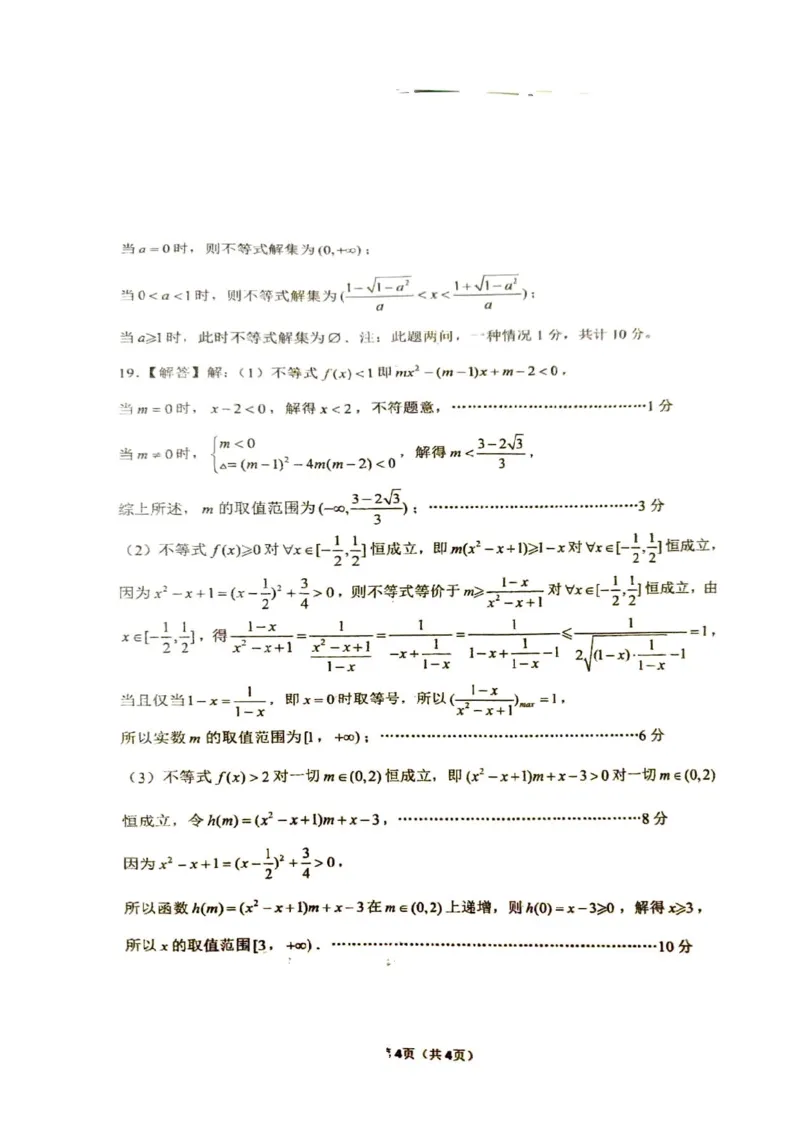 当a=0时，则不等式解集为(0,+∞)；
当0<a<1时，则不等式解集为(\frac{1-\sqrt{1-a^2}}{a}<x<\frac{1+\sqrt{1-a^2}}{a})；
当a⩾1时，此时不等式解集为∅．注：此题两问，一种情况1分，共计10分。
19.【解答】解：（1）不等式f(x)<1即mx²-(m-1)x+m-2<0，
当m=0时，x-2<0，解得x<2，不符题意，……………………………1分
当m≠0时，\begin{cases}m<0\\△=(m-1)^2-4m(m-2)<0\end{cases}，解得m<\frac{3-2\sqrt{3}}{3}，
综上所述，m的取值范围为(-∞,\frac{3-2\sqrt{3}}{3})；……………………………3分
（2）不等式f(x)⩾0对∀x∈[-\frac{1}{2},\frac{1}{2}]恒成立，即m(x²-x+1)⩾1-x对∀x∈[-\frac{1}{2},\frac{1}{2}]恒成立，
因为x²-x+1=(x-\frac{1}{2})²+\frac{3}{4}>0，则不等式等价于m⩾\frac{1-x}{x^2-x+1}对∀x∈[-\frac{1}{2},\frac{1}{2}]恒成立，由
x∈[-\frac{1}{2},\frac{1}{2}]，得\frac{1-x}{x^2-x+1}=\frac{1}{\frac{x^2-x+1}{1-x}}=\frac{1}{-x+\frac{1}{1-x}}=\frac{1}{1-x+\frac{1}{1-x}-1}⩽\frac{1}{2\sqrt{(1-x)·\frac{1}{1-x}}-1}=1，
当且仅当1-x=\frac{1}{1-x}，即x=0时取等号，所以(\frac{1-x}{x^2-x+1})_{max}=1，
所以实数m的取值范围为[1，+∞)；……………………………6分
（3）不等式f(x)>2对一切m∈(0,2)恒成立，即(x²-x+1)m+x-3>0对一切m∈(0,2)
恒成立，令h(m)=(x²-x+1)m+x-3，……………………………8分
因为x²-x+1=(x-\frac{1}{2})²+\frac{3}{4}>0，
所以函数h(m)=(x²-x+1)m+x-3在m∈(0,2)上递增，则h(0)=x-3⩾0，解得x⩾3，
所以x的取值范围[3，+∞)．……………………………10分
4页（共4页）